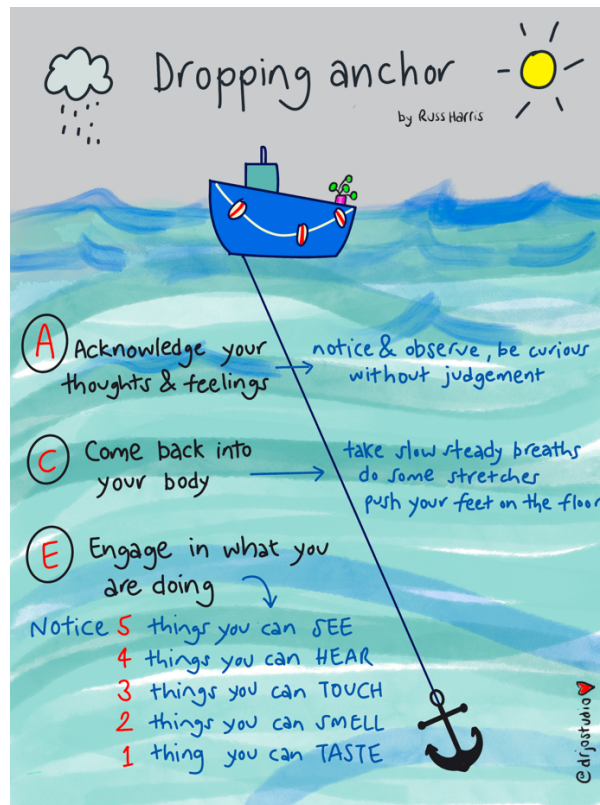 Dropping anchor
by Russ Harris
A Acknowledge your
thoughts & feelings
notice & observe, be curious
without judgement
C Come back into
your body
take slow steady breaths
do some stretches
push your feet on the floor
E Engage in what you
are doing
Notice 5 things you can SEE
4 things you can HEAR
3 things you can TOUCH
2 things you can SMELL
1 thing you can TASTE
@drjostudio